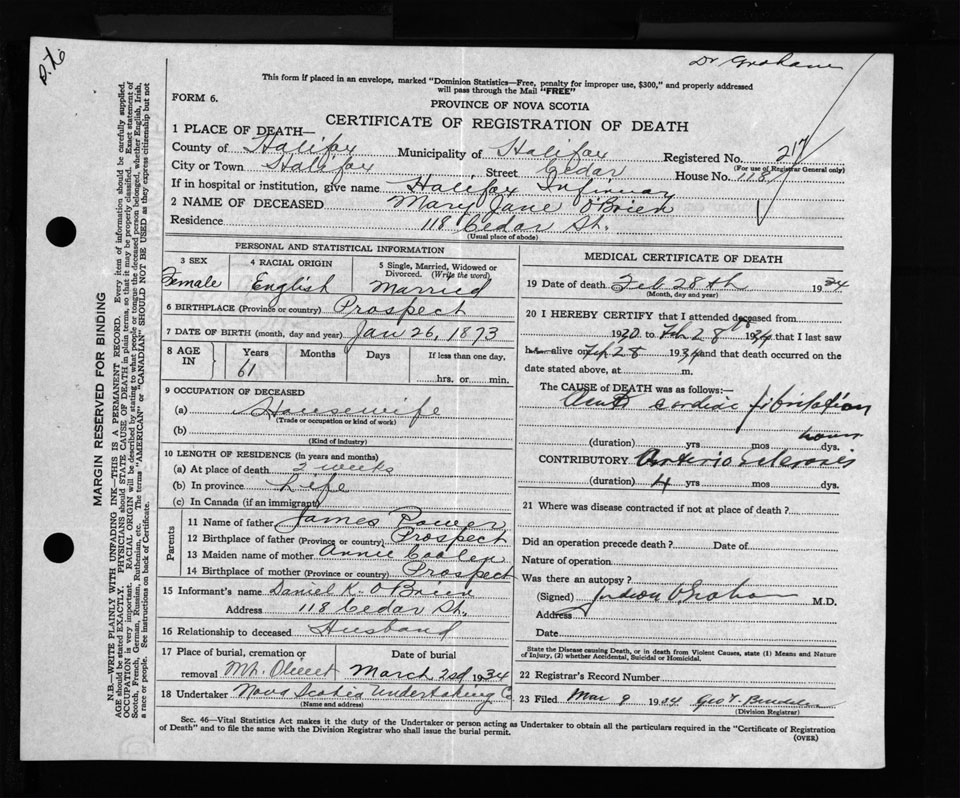 Dr Graham
This form if placed in an envelope, marked "Dominion Statistics—Free, penalty for improper use, $300," and properly addressed
will pass through the Mail "FREE"
FORM 6.
PROVINCE OF NOVA SCOTIA
CERTIFICATE OF REGISTRATION OF DEATH
1 PLACE OF DEATH—
County of Halifax Municipality of Halifax Registered No. 217
(For use of Registrar General only)
City or Town Halifax, Street Cedar House No. 118
If in hospital or institution, give name Halifax Infirmary
2 NAME OF DECEASED Mary Jane O'Brien
Residence 118 Cedar St.
(Usual place of abode)
PERSONAL AND STATISTICAL INFORMATION
3 SEX Female
4 RACIAL ORIGIN English
5 Single, Married, Widowed or Divorced. (Write the word) Married
6 BIRTHPLACE (Province or country) Prospect
7 DATE OF BIRTH (month, day and year) Jan 26, 1873
8 AGE IN Years 61 Months Days If less than one day, hrs. or min.
9 OCCUPATION OF DECEASED
(a) Housewife
(Trade or occupation or kind of work)
(b)
(Kind of industry)
10 LENGTH OF RESIDENCE (in years and months)
(a) At place of death 2 weeks
(b) In province Life
(c) In Canada (if an immigrant)
Parents
11 Name of father James Power
12 Birthplace of father (Province or country) Prospect
13 Maiden name of mother Annie
14 Birthplace of mother (Province or country) Prospect
15 Informant's name Daniel K. O'Brien
Address 118 Cedar St.
16 Relationship to deceased Husband
17 Place of burial, cremation or removal Mt. Olivet
Date of burial March 2nd 1934
18 Undertaker Nova Scotia Undertaking Co
(Name and address)
MEDICAL CERTIFICATE OF DEATH
19 Date of death Feb 28th 1934
(Month, day and year)
20 I HEREBY CERTIFY that I attended deceased from
1920 to Feb 28th 1934 that I last saw
h alive on Feb 28 1934 and that death occurred on the
date stated above, at m.
The CAUSE of DEATH was as follows:—
Acute cardiac fibrillation
(duration) yrs mos hours dys.
CONTRIBUTORY Arterio Sclerosis
(duration) 4 yrs mos dys.
21 Where was disease contracted if not at place of death?
Did an operation precede death? Date of
Nature of operation
Was there an autopsy?
(Signed) Judson Graham M.D.
Address
Date
State the Disease causing Death, or in death from Violent Causes, state (1) Means and Nature
of Injury, (2) whether Accidental, Suicidal or Homicidal.
22 Registrar's Record Number
23 Filed Mar 9 1934 Geo
(Division Registrar)
Sec. 46—Vital Statistics Act makes it the duty of the Undertaker or person acting as Undertaker to obtain all the particulars required in the "Certificate of Registration
of Death" and to file the same with the Division Registrar who shall issue the burial permit.
(OVER)
MARGIN RESERVED FOR BINDING
N.B.—WRITE PLAINLY WITH UNFADING INK—THIS IS A PERMANENT RECORD. Every item of information should be carefully supplied.
AGE should be stated EXACTLY. PHYSICIANS should STATE CAUSE OF DEATH in plain terms, so that it may be properly classified. Exact statement of
OCCUPATION is very important. RACIAL ORIGIN will be described by stating to what people or tongue the deceased person belonged, whether English, Irish,
Scotch, French, German, Russian, Ruthenian, etc. The terms "AMERICAN" or "CANADIAN" SHOULD NOT BE USED as they express citizenship but not
a race or people. See instructions on back of Certificate.